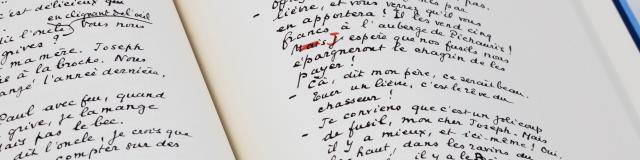 c'est délicieux que
en clignant de l'œil
dit l'oncle, vous nous
grives?
ma mère. Joseph
à la broche. Nous
mangé l'année dernière,
Paul avec feu, quand
grive, je la mange
mais pas le bec.
dit l'oncle, je crois que
compter sur des
lièvre, et vous verrez qu'il vous
en apportera! Il les vend cinq
francs, à l'auberge de Pichauris!
Mais j'espère que nos fusils nous
épargneront le chagrin de les
payer!
- Çà, dit mon père, ce serait beau.
- Tuer un lièvre, c'est le rêve du
chasseur!
- Je conviens que c'est un joli coup
de fusil, mon cher Joseph. Mais
il y a mieux, et ici-même! Oui,
là haut, dans les ravins du
il y a le